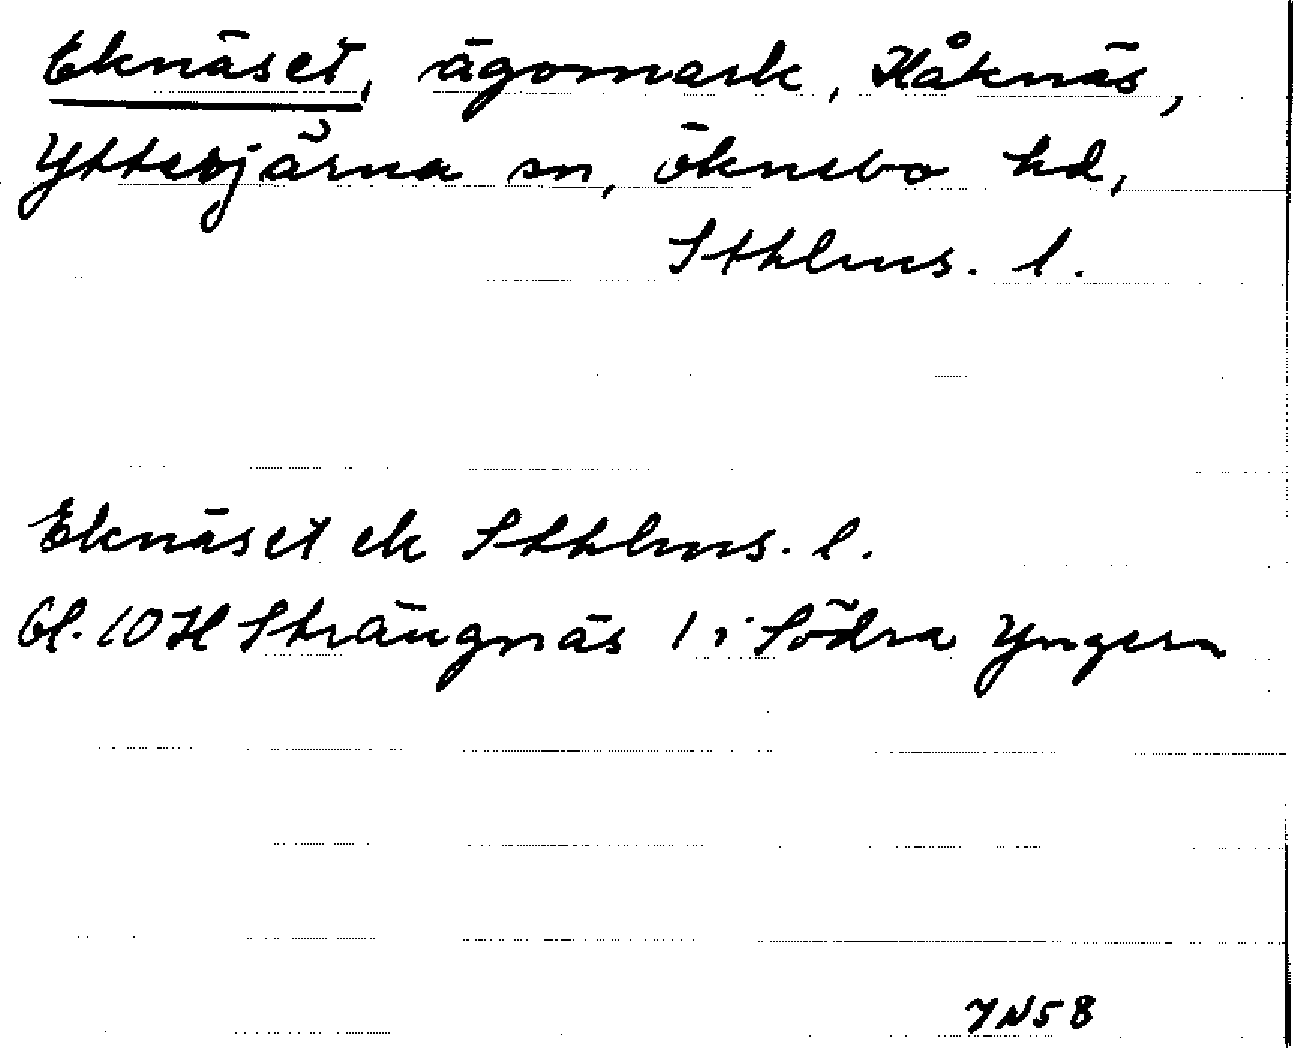 Eknäset, ägomark, Håknäs,
Ytterjärna sn, Öknebo hd,
Sthlms. l.
Eknäset ek Sthlms. l.
bl. 10 H Strängnäs 1 i Södra Yngern
7N58